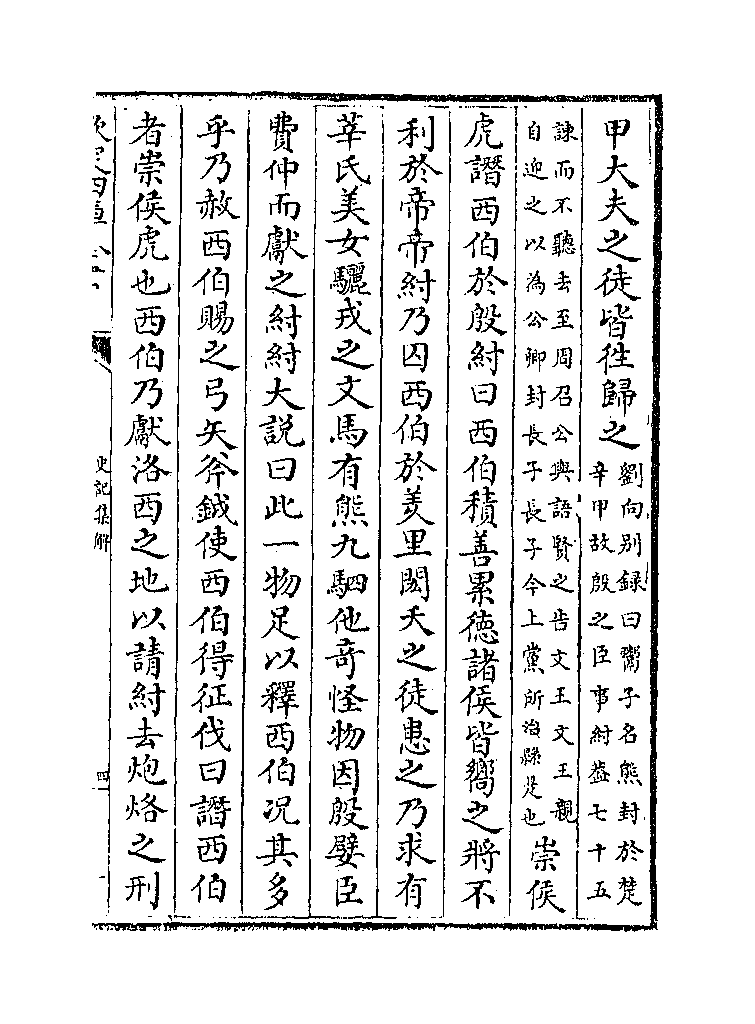 甲大夫之徒皆徃歸之劉向别録曰鬻子名熊封於楚辛甲故殷之臣事紂蓋七十五
諫而不聽去至周召公與語賢之告文王文王親自迎之以為公卿封長子長子今上黨所治縣是也崇侯
虎譖西伯於殷紂曰西伯積善累徳諸侯皆嚮之將不
利於帝帝紂乃囚西伯於羑里閎夭之徒患之乃求有
莘氏美女驪戎之文馬有熊九駟他竒怪物因殷嬖臣
費仲而獻之紂紂大説曰此一物足以釋西伯况其多
乎乃赦西伯賜之弓矢斧鉞使西伯得征伐曰譖西伯
者崇侯虎也西伯乃獻洛西之地以請紂去炮烙之刑
史記集解
四